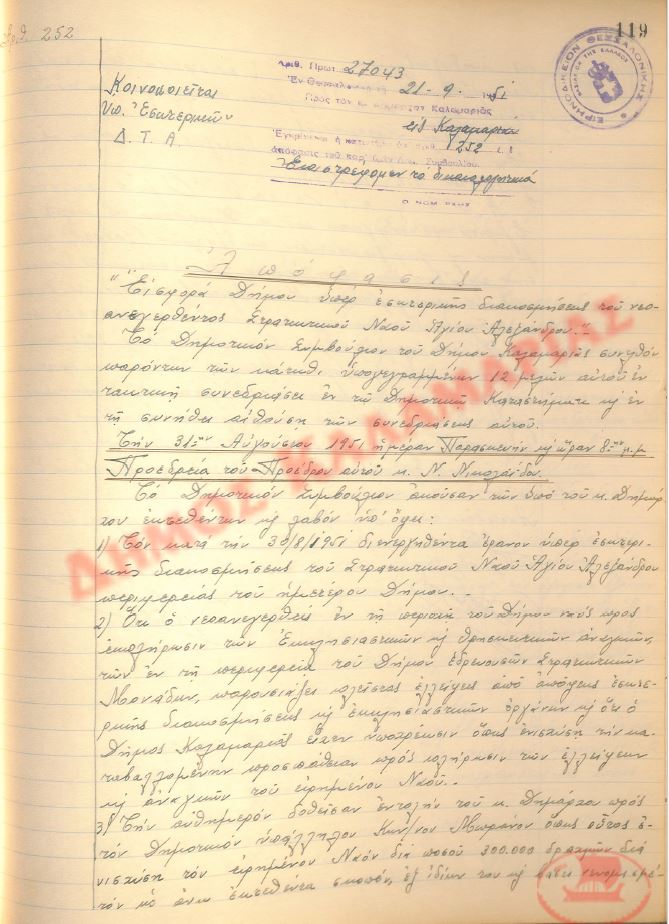 Αριθ. 252
119
Αριθ. Πρωτ. 27043
Ἐν Θεσσαλονίκῃ τῇ 21-9-51
Πρὸς τὸν κ. Δήμαρχον Καλαμαριᾶς
εἰς Καλαμαριὰ
252
ἀπόφασις τοῦ
Ἐπιστρέφομεν τὰ δικαιολογητικὰ
Ο ΝΟΜΑΡΧΗΣ
ΕΙΡΗΝΟΔΙΚΕΙΟΝ ΘΕΣΣΑΛΟΝΙΚΗΣ
ΒΑΣΙΛΕΙΟΝ ΤΗΣ ΕΛΛΑΔΟΣ
Κοινοποιεῖται
Ὑπ. Ἐσωτερικῶν
Δ. Τ. Α.
Ἀπόφασις
"Εἰσφορά Δήμου ὑπέρ ἐσωτερικῆς διακοσμήσεως τοῦ νεο-
ανεγερθέντος Στρατιωτικοῦ Ναοῦ Ἁγίου Ἀλεξάνδρου."
Τό Δημοτικόν Συμβούλιον τοῦ Δήμου Καλαμαριᾶς συνελθόν
παρόντων τῶν κάτωθι ὑπογεγραμμένων 12 μελῶν αὐτοῦ ἐν
τακτικῇ συνεδριάσει ἐν τῷ Δημοτικῷ Καταστήματι κ ἐν
τῇ συνήθει αἰθούσῃ τῶν συνεδριάσεων αὐτοῦ.
Τήν 31ην Αὐγούστου 1951 ἡμέραν Παρασκευήν κ ὥραν 8ην μ.μ
Προεδρεία τοῦ Προέδρου αὐτοῦ κ. Ν. Νικολαΐδου.
Τό Δημοτικόν Συμβούλιον ἀκοῦσαν τῶν ὑπό τοῦ κ. Δημάρ
χου ἐκτεθέντων κ λαβόν ὑπ' ὄψει:
1) Τόν κατά τήν 30/8/1951 διενεργηθέντα ἔρανον ὑπέρ ἐσωτερι-
κῆς διακοσμήσεως τοῦ Στρατιωτικοῦ Ναοῦ Ἁγίου Ἀλεξάνδρου
περιφερείας τοῦ ἡμετέρου Δήμου..
2) Ὅτι ὁ νεοανεγερθείς ἐν τῇ περιοχῇ τοῦ Δήμου ναός πρός
ἐκπλήρωσιν τῶν Ἐκκλησιαστικῶν κ θρησκευτικῶν ἀναγκῶν,
τῶν ἐν τῇ περιφερείᾳ τοῦ Δήμου ἑδρευουσῶν Στρατιωτικῶν
Μονάδων, παρουσιάζει πλείστας ἐλλείψεις ἀπό ἀπόψεως ἐσωτε-
ρικῆς διακοσμήσεως κ ἐκκλησιαστικῶν ὀργάνων κ ὅτι ὁ
Δῆμος Καλαμαριᾶς εἶχεν ὑποχρέωσιν ὅπως ἐνισχύσῃ τήν κα-
ταβαλλομένην προσπάθειαν πρός πλήρωσιν τῶν ἐλλείψεων
κ ἀναγκῶν τοῦ εἰρημένου Ναοῦ..
3) Τήν αὐθημερόν δοθεῖσαν ἐντολήν τοῦ κ. Δημάρχου πρός
τόν Δημοτικόν ὑπάλληλον Κων/νον ὅπως οὗτος ἐ-
νισχύσῃ τόν εἰρημένον Ναόν διά ποσοῦ 300.000 δραχμῶν διά
τόν ὡς ἄνω ἐκτεθέντα σκοπόν, ἐξ ἰδίων του κ
ΔΗΜΟΣ ΚΑΛΑΜΑΡΙΑΣ